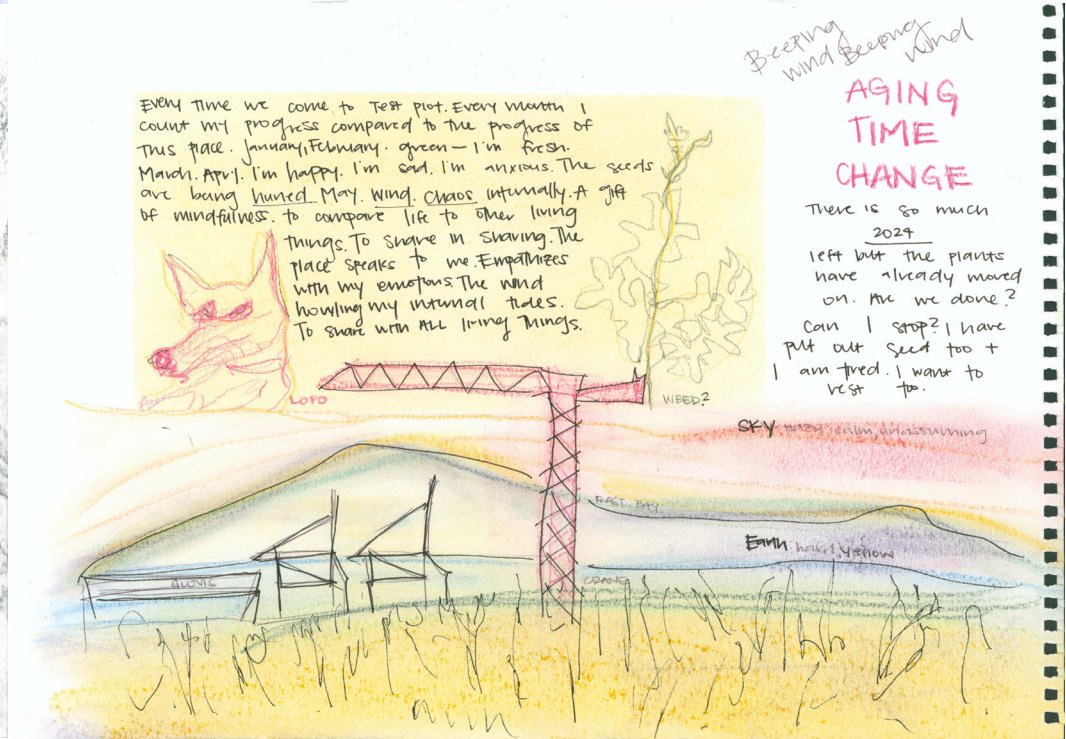 Beeping
wind Beeping
wind
AGING
TIME
CHANGE
Every time we come to Test plot. Every month I
count my progress compared to the progress of
this place. January, February. green — I'm fresh.
March. April. I'm happy. I'm sad. I'm anxious. The seeds
are being huned May. Wind. Chaos internally. A gift
of mindfulness. to compare life to other living
things. To share in sharing. The
place speaks to me. Empathizes
with my emotions. The wind
howling my internal tides.
To share with ALL living things.
There is so much
2024
left but the plants
have already moved
on. Are we done?
Can I stop? I have
put out seed too +
I am tired. I want to
rest too.
LOPO
WEED?
SKY hazy, calm, unassuming
EAST BAY
Earth yellow
GLOVIS